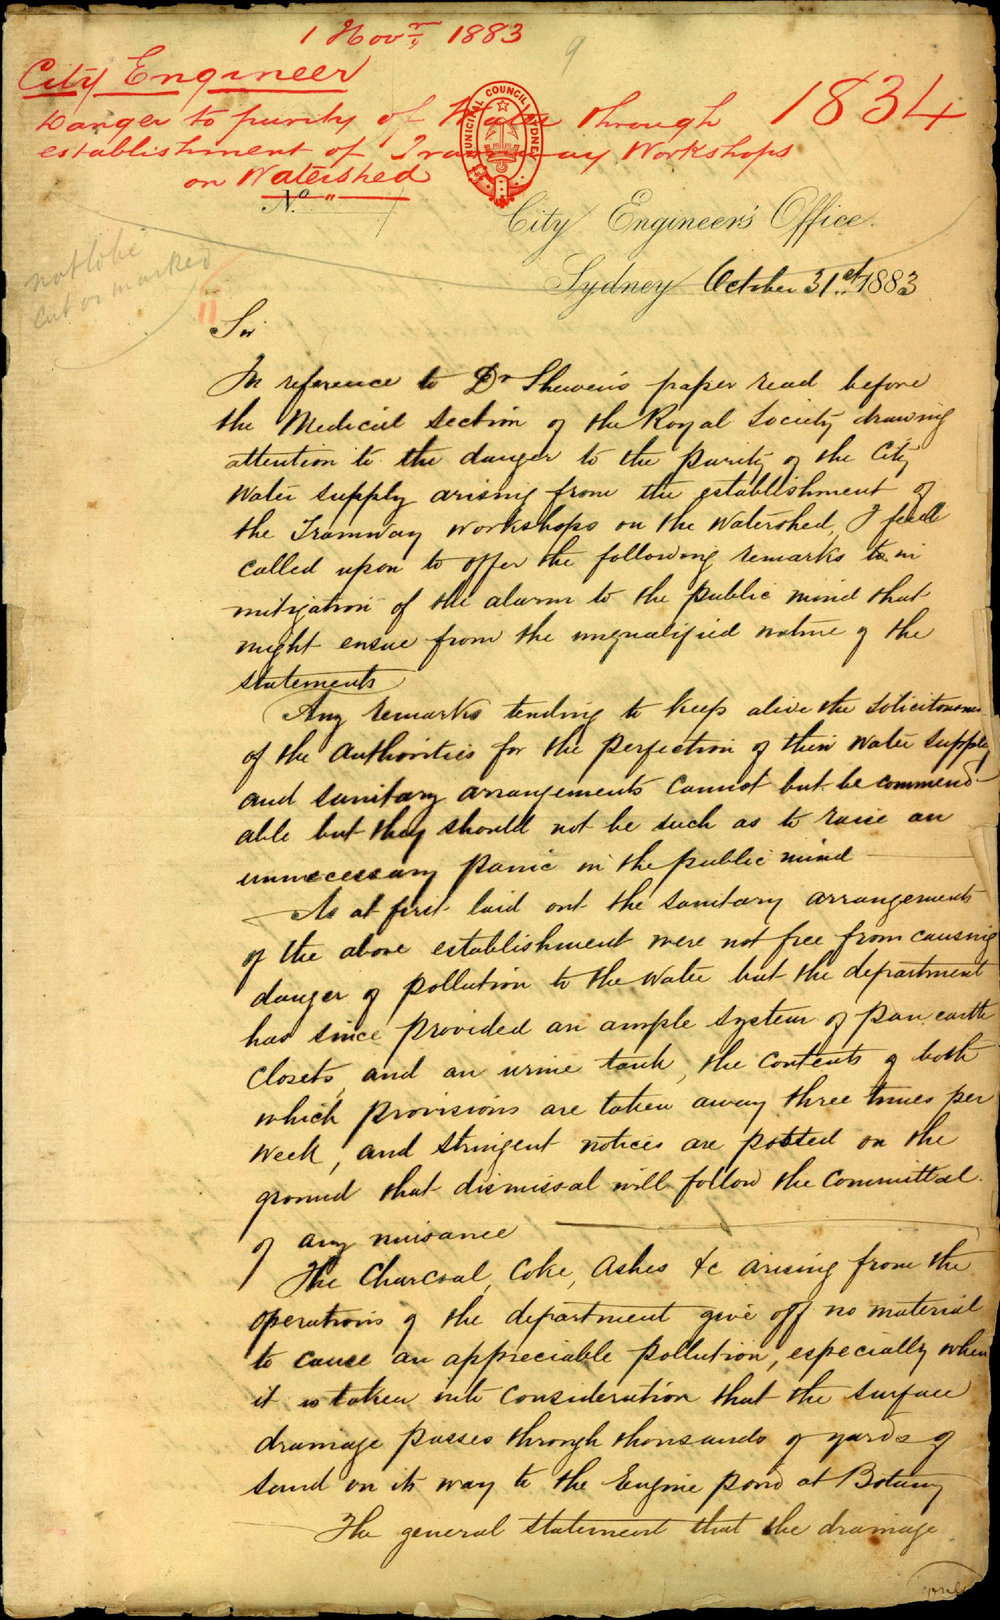 1 Novr, 1883
9
City Engineer
Danger to purity of Water through
establishment of Tramway Workshops
on Watershed
1834
MUNICIPAL COUNCIL SYDNEY
No
City Engineer's Office.
Sydney October 31st 1883
not to be
cut or marked
Sir
In reference to Dr Shewen's paper read before
the Medical section of the Royal Society drawing
attention to the danger to the purity of the City
Water supply arising from the establishment of
the Tramway workshops on the Watershed, I feel
called upon to offer the following remarks in
mitigation of the alarm to the public mind that
might ensue from the unqualified nature of the
statements
Any remarks tending to keep alive the solicitousness
of the authorities for the perfection of their Water supply
and sanitary arrangements cannot but be commend-
able but they should not be such as to raise an
unnecessary panic in the public mind
As at first laid out the sanitary arrangements
of the above establishment were not free from causing
danger of pollution to the Water but the department
has since provided an ample system of pan earth
closets, and an urine tank, the contents of both
which provisions are taken away three times per
week, and stringent notices are posted on the
ground that dismissal will follow the committal
of any nuisance
The Charcoal, Coke, Ashes &c arising from the
operations of the department give off no material
to cause an appreciable pollution, especially when
it is taken into consideration that the surface
drainage passes through thousands of yards of
sand on its way to the Engine pond at Botany
The general statement that the drainage